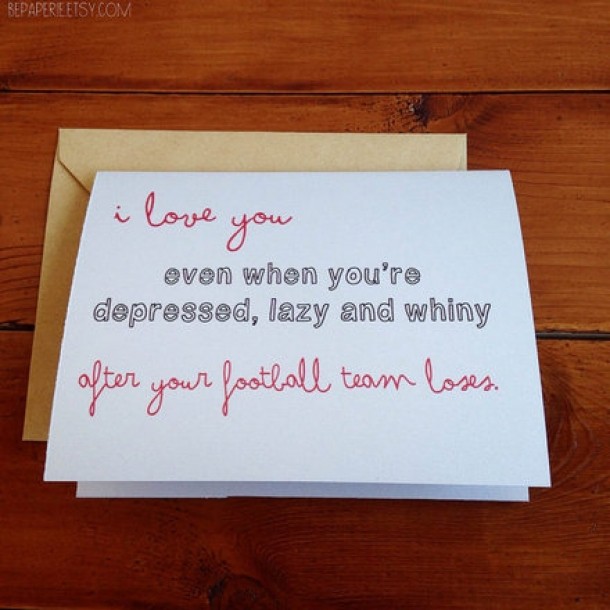 BEPAPERIE.ETSY.COM
i love you
even when you're
depressed, lazy and whiny
after your football team loses.